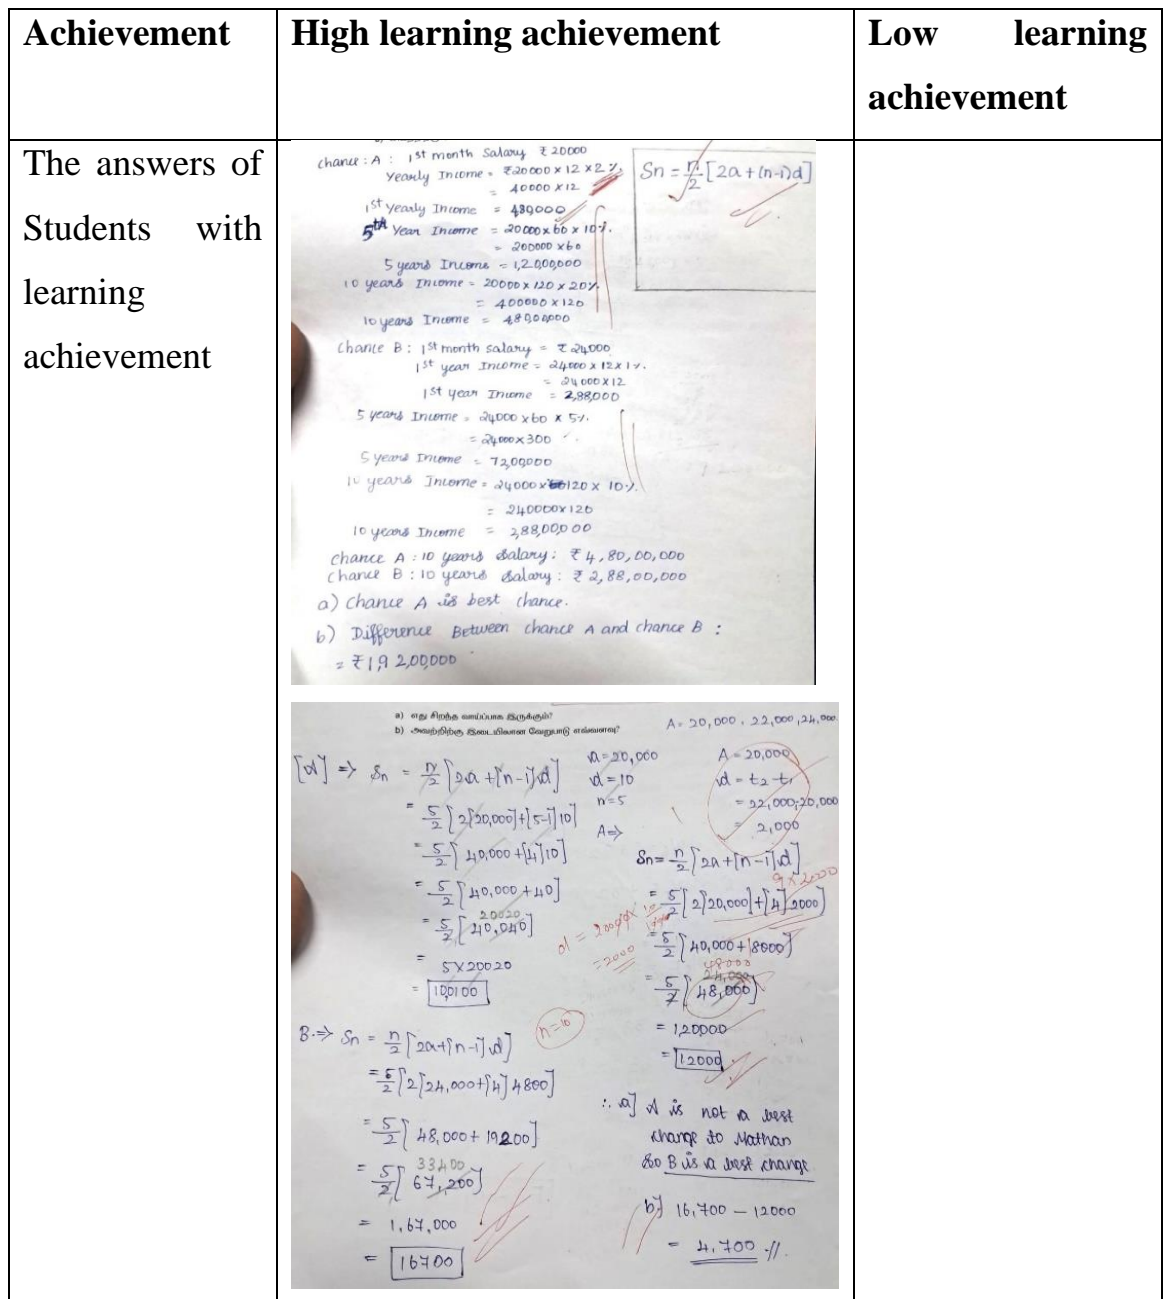 Achievement
High learning achievement
Low learning
achievement
The answers of
Students with
learning
achievement
chance : A : 1st month Salary ₹ 20000
Yearly Income = ₹20000 × 12 × 2 %
= 40000 × 12
1st Yearly Income = 480000
5th Year Income = 20000 × 60 × 10%
= 200000 × 60
5 years Income = 1,20,00,000
10 years Income = 20000 × 120 × 20%
= 400000 × 120
10 years Income = 4,80,00,000
Sn = n/2 [2a + (n-1)d]
Chance B : 1st month salary = ₹ 24,000
1st year Income = 24000 × 12 × 1%
= 24000 × 12
1st year Income = 2,88,000
5 years Income = 24000 × 60 × 5%
= 24000 × 300
5 years Income = 72,00,000
10 years Income = 24000 × 120 × 10%
= 240000 × 120
10 years Income = 2,88,00,000
Chance A : 10 years Salary : ₹ 4,80,00,000
Chance B : 10 years Salary : ₹ 2,88,00,000
a) Chance A is best chance.
b) Difference Between chance A and chance B :
= ₹ 1,92,00,000
a) எது சிறந்த வாய்ப்பாக இருக்கும்?
b) அவற்றிற்கு இடையிலான வேறுபாடு எவ்வளவு?
A = 20,000, 22,000, 24,000
[A] => Sn = n/2 [2a + [n-1]d]
= 5/2 [2[20,000] + [5-1]10]
= 5/2 [40,000 + [4]10]
= 5/2 [40,000 + 40]
20020
= 5/2 [40,040]
= 5×20020
= 100100
a = 20,000
d = 10
n = 5
A =>
A = 20,000
d = t2 - t1
= 22,000 - 20,000
= 2,000
Sn = n/2 [2a + [n-1]d]
9 × 2000
= 5/2 [2[20,000] + [4]2000]
= 5/2 [40,000 + 8000]
48000
24,000
= 5/2 [48,000]
= 1,20000
= 12000
= 2000
n=10
B => Sn = n/2 [2a + [n-1]d]
= 5/2 [2[24,000 + [4]4800]
= 5/2 [48,000 + 19200]
33400
= 5/2 [67,200]
= 1,67,000
= 16700
∴ a] A is not a best
change to Mathan
So B is a best change
b] 16,700 - 12000
= 4,700 //.